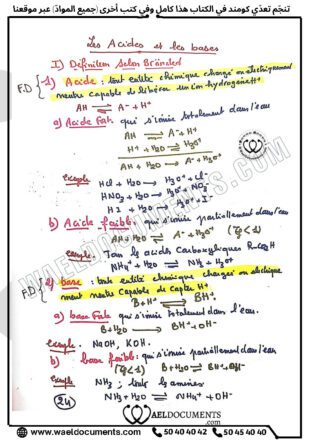 تنجّم تعدّي كومند في الكتاب هذا كامل وفي كتب أخرى (جميع المواد) عبر موقعنا
Les Acides et les bases
I) Définition selon Brönsted
F.D
1) Acide : tout entité chimique chargé ou électriquement
neutre capable de libérer un ion hydrogène H⁺
AH ⇌ A⁻ + H⁺
a) Acide Fort qui s'ionise totalement dans l'eau
AH ⇌ A⁻ + H⁺
H⁺ + H₂O ⇌ H₃O⁺
AH + H₂O → A⁻ + H₃O⁺
Exemple
HCl + H₂O → H₃O⁺ + Cl⁻
HNO₃ + H₂O → H₃O⁺ + NO₃⁻
HI + H₂O → H₃O⁺ + I⁻
b) Acide faible : qui s'ionise partiellement dans l'eau
AH + H₂O ⇌ A⁻ + H₃O⁺ (τf < 1)
Exemple. Tous les acides Carboxyliques R-COOH
NH₄⁺ + H₂O ⇌ NH₃ + H₃O⁺
F.D
2) base : toute entité chimique chargée ou électrique
ment neutre capable de capter H⁺
B + H⁺ ⇌ BH⁺
a) base Forte qui s'ionise totalement dans l'eau.
B + H₂O → BH⁺ + OH⁻
Exemple. NaOH, KOH.
b) base faible : qui s'ionise partiellement dans l'eau
(τf < 1) B + H₂O ⇌ BH⁺ + OH⁻
Exemple NH₃ ; tout les amines
NH₃ + H₂O ⇌ NH₄⁺ + OH⁻
24
WAELDOCUMENTS
.com
WAELDOCUMENTS.COM
www.waeldocuments.com
50 40 40 42
50 45 40 40